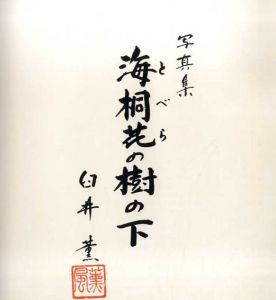 写真集
海桐花の樹の下
とべら
臼井薫
薫風